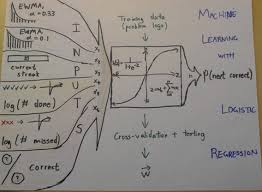 EWMA,
α = 0.33
EWMA,
α = 0.1
current
streak
log (# done)
xxx
log (# missed)
correct
INPUTS
Training data
(problem logs)
P(next correct)
Cross-validation + testing
w
MACHINE
LEARNING
WITH
LOGISTIC
REGRESSION